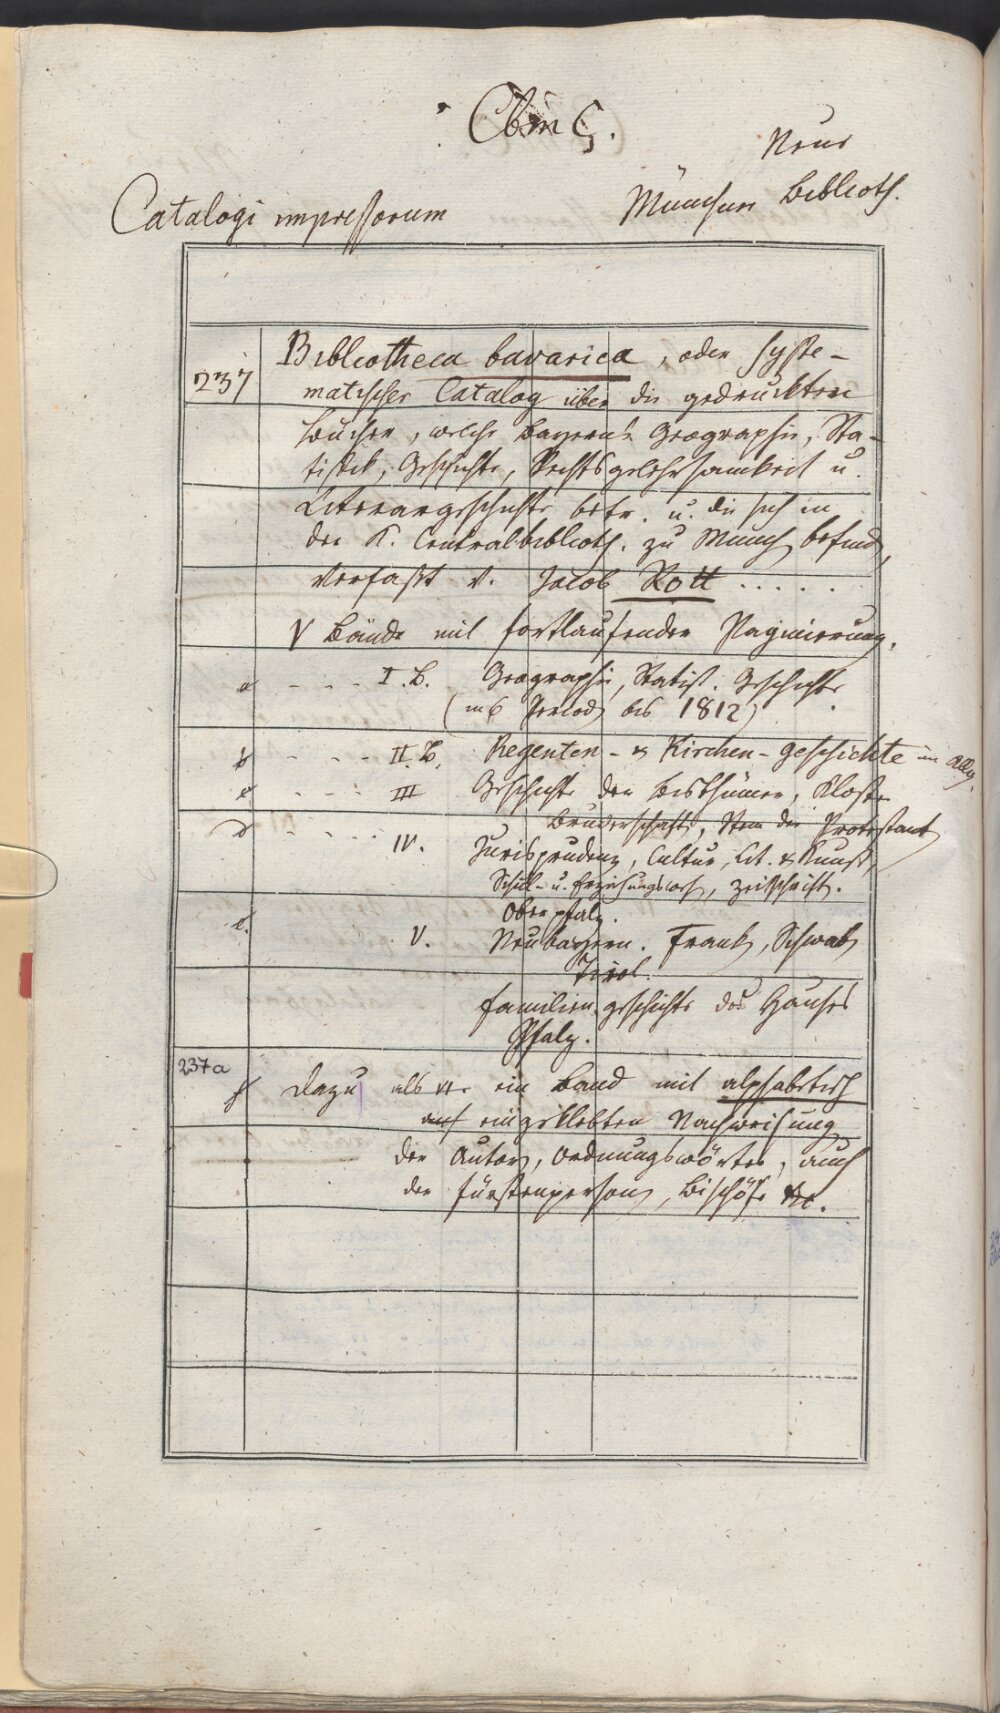 Cbm C.
Neue
Catalogi impressorum
München Biblioth.
237
Bibliotheca bavarica, oder syste-
matischer Catalog über die gedruckten
Bücher, welche Bayern's Geographie, Sta-
tistik, Geschichte, Rechtsgelehrsamkeit u.
Literargeschichte betr. u. die sich in
der K. Centralbiblioth. zu Münch befind,
verfaßt v. Jacob Rott . . . . .
V Bände mit fortlaufender Paginierung.
a - - - I. B. Geographie, Statist. Geschichte
(in 6 Period bis 1812)
b - - - II. B. Regenten- & Kirchen-geschichte im Allg.
c - - - III Geschichte der Bisthümer, Klöster
Bruderschaft, die Protestant
d - - - IV. Jurisprudenz, Cultur, Lit. & Kunst,
Schul- u. Erziehungswes, Zeitschrift.
Oberpfalz.
e. V. Neubayern. Frank, Schwab
Tirol.
Familiengeschichte des Hauses
Pfalz.
237a
f Dazu als VI. ein Band mit alphabetisch
auf eingeklebten Nachweisung
der Autor, Ordnungswörter, auch
der Fürstenperson, Bischöfe etc.